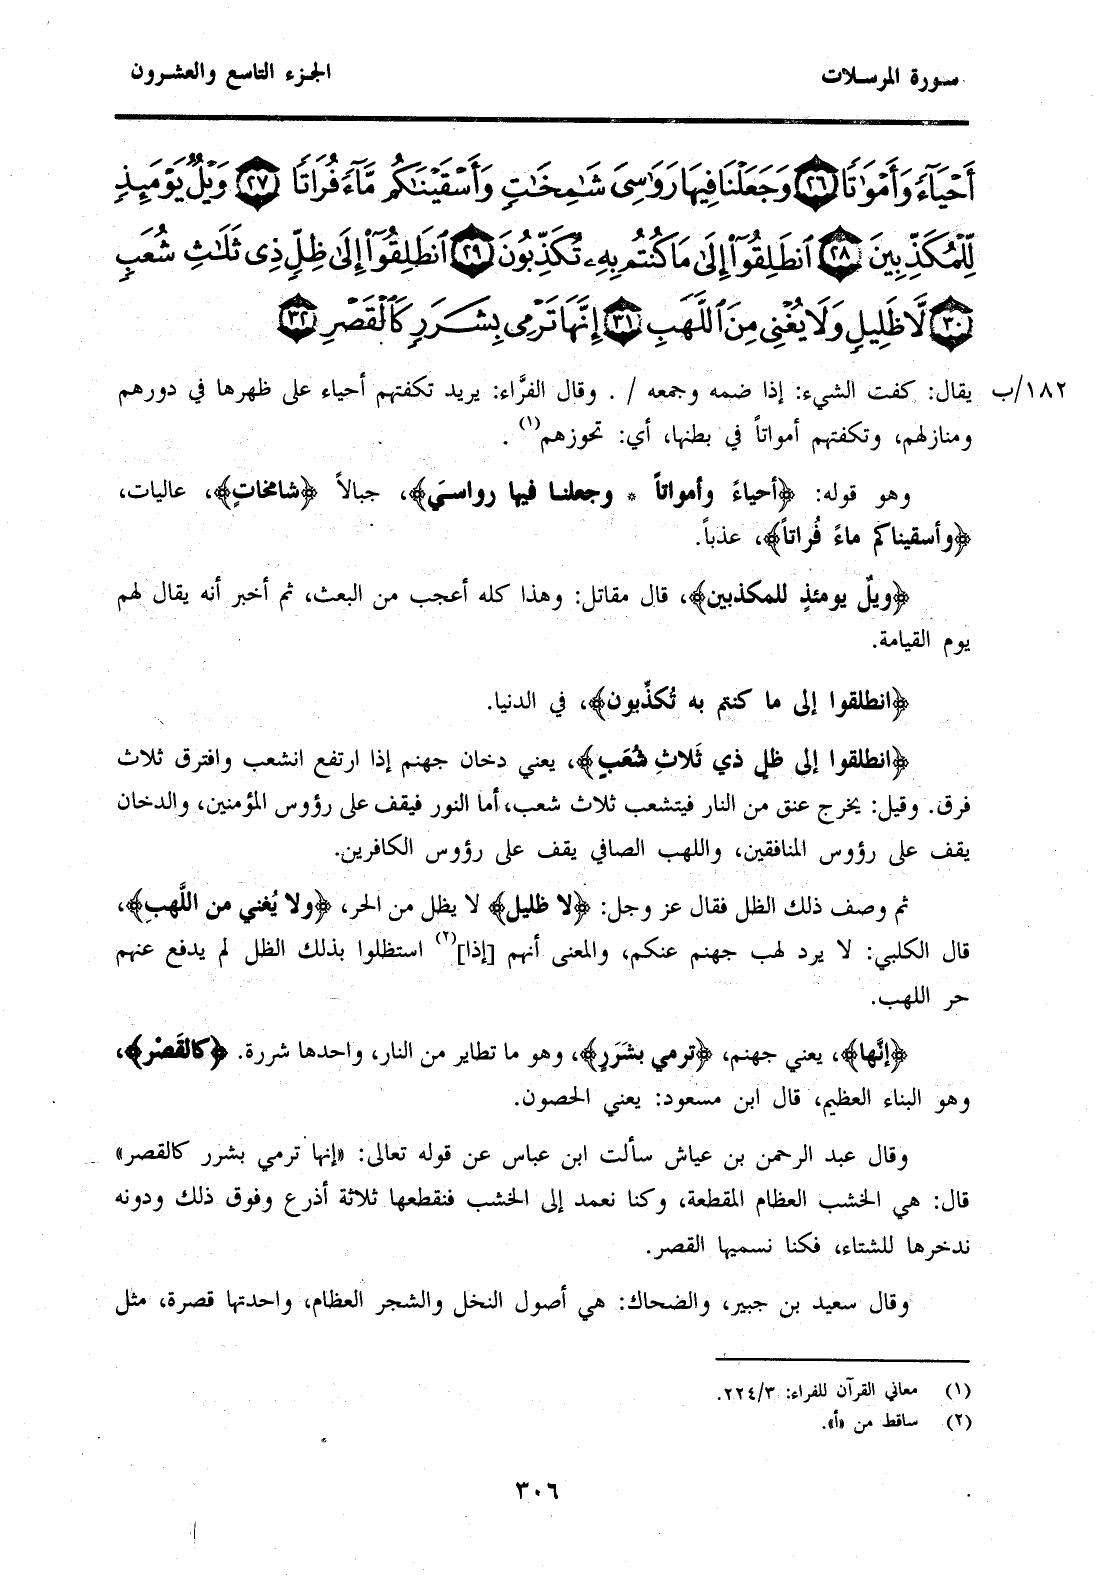 سورة المرسلات
الجزء التاسع والعشرون
أَحْيَآءً وَأَمْوَٰتًا ٢٦ وَجَعَلْنَا فِيهَا رَوَٰسِىَ شَٰمِخَٰتٍ وَأَسْقَيْنَٰكُم مَّآءً فُرَاتًا ٢٧ وَيْلٌ يَوْمَئِذٍ
لِّلْمُكَذِّبِينَ ٢٨ ٱنطَلِقُوٓا۟ إِلَىٰ مَا كُنتُم بِهِۦ تُكَذِّبُونَ ٢٩ ٱنطَلِقُوٓا۟ إِلَىٰ ظِلٍّ ذِى ثَلَٰثِ شُعَبٍ
٣٠ لَّا ظَلِيلٍ وَلَا يُغْنِى مِنَ ٱللَّهَبِ ٣١ إِنَّهَا تَرْمِى بِشَرَرٍ كَٱلْقَصْرِ ٣٢
١٨٢/ب يقال: كفت الشيء: إذا ضمه وجمعه / . وقال الفرَّاء: يريد تكفتهم أحياء على ظهرها في دورهم
ومنازلهم، وتكفتهم أمواتاً في بطنها، أي: تحوزهم(١) .
وهو قوله: ﴿أحياءً وأمواتاً * وجعلنا فيها رواسيَ﴾، جبالاً ﴿شامخاتٍ﴾، عاليات،
﴿وأسقيناكم ماءً فُراتاً﴾، عذباً.
﴿ويلٌ يومئذٍ للمكذبين﴾، قال مقاتل: وهذا كله أعجب من البعث، ثم أخبر أنه يقال لهم
يوم القيامة.
﴿انطلقوا إلى ما كنتم به تُكذِّبون﴾، في الدنيا.
﴿انطلقوا إلى ظلٍ ذي ثَلاثِ شُعَبٍ﴾، يعني دخان جهنم إذا ارتفع انشعب وافترق ثلاث
فرق. وقيل: يخرج عنق من النار فيتشعب ثلاث شعب، أما النور فيقف على رؤوس المؤمنين، والدخان
يقف على رؤوس المنافقين، واللهب الصافي يقف على رؤوس الكافرين.
ثم وصف ذلك الظل فقال عز وجل: ﴿لا ظليل﴾ لا يظل من الحر، ﴿ولا يُغني من اللَّهبِ﴾،
قال الكلبي: لا يرد لهب جهنم عنكم، والمعنى أنهم [إذا](٢) استظلوا بذلك الظل لم يدفع عنهم
حر اللهب.
﴿إنَّها﴾، يعني جهنم، ﴿ترمي بشَرَرٍ﴾، وهو ما تطاير من النار، واحدها شررة. ﴿كالقَصْر﴾،
وهو البناء العظيم، قال ابن مسعود: يعني الحصون.
وقال عبد الرحمن بن عياش سألت ابن عباس عن قوله تعالى: «إنها ترمي بشرر كالقصر»
قال: هي الخشب العظام المقطعة، وكنا نعمد إلى الخشب فنقطعها ثلاثة أذرع وفوق ذلك ودونه
ندخرها للشتاء، فكنا نسميها القصر.
وقال سعيد بن جبير، والضحاك: هي أصول النخل والشجر العظام، واحدتها قصرة، مثل
(١) معاني القرآن للفراء: ٢٢٤/٣.
(٢) ساقط من «أ».
٣٠٦